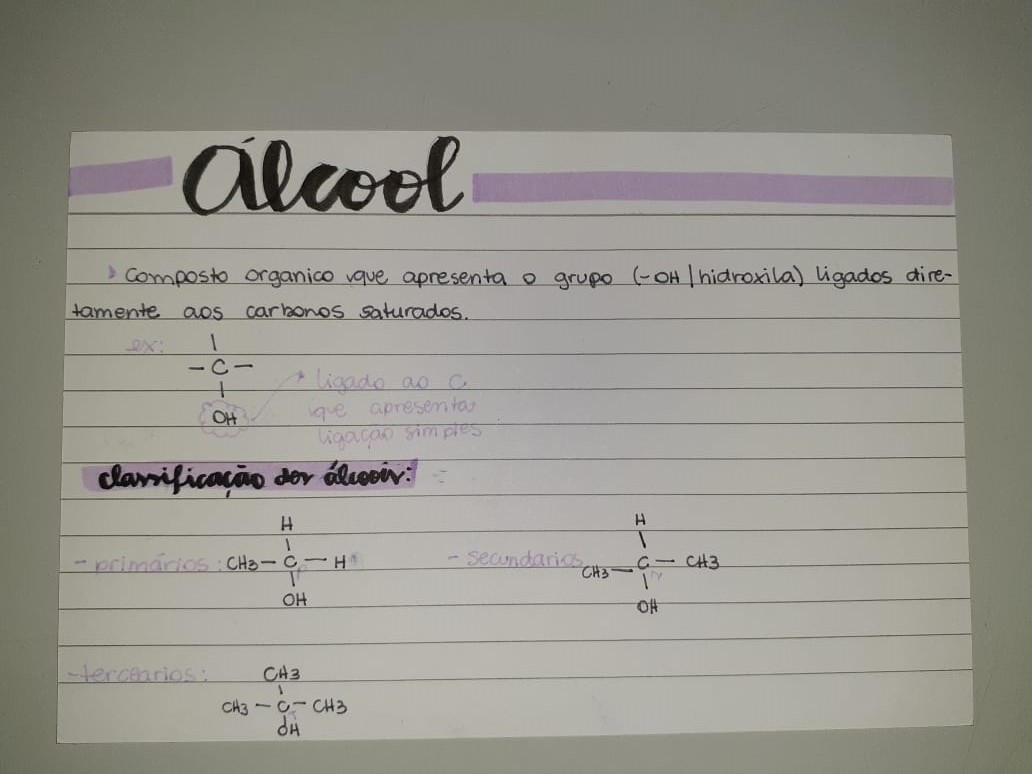 Álcool
Composto organico que apresenta o grupo (-OH | hidroxila) ligados dire-
tamente aos carbonos saturados.
ex:
- C -
OH
ligado ao C
que apresentar
ligação simples
classificação dos álcoois:
H
- primários: CH3 - C - H
OH
H
- secundarios CH3 - C - CH3
OH
- terceários:
CH3
CH3 - C - CH3
OH